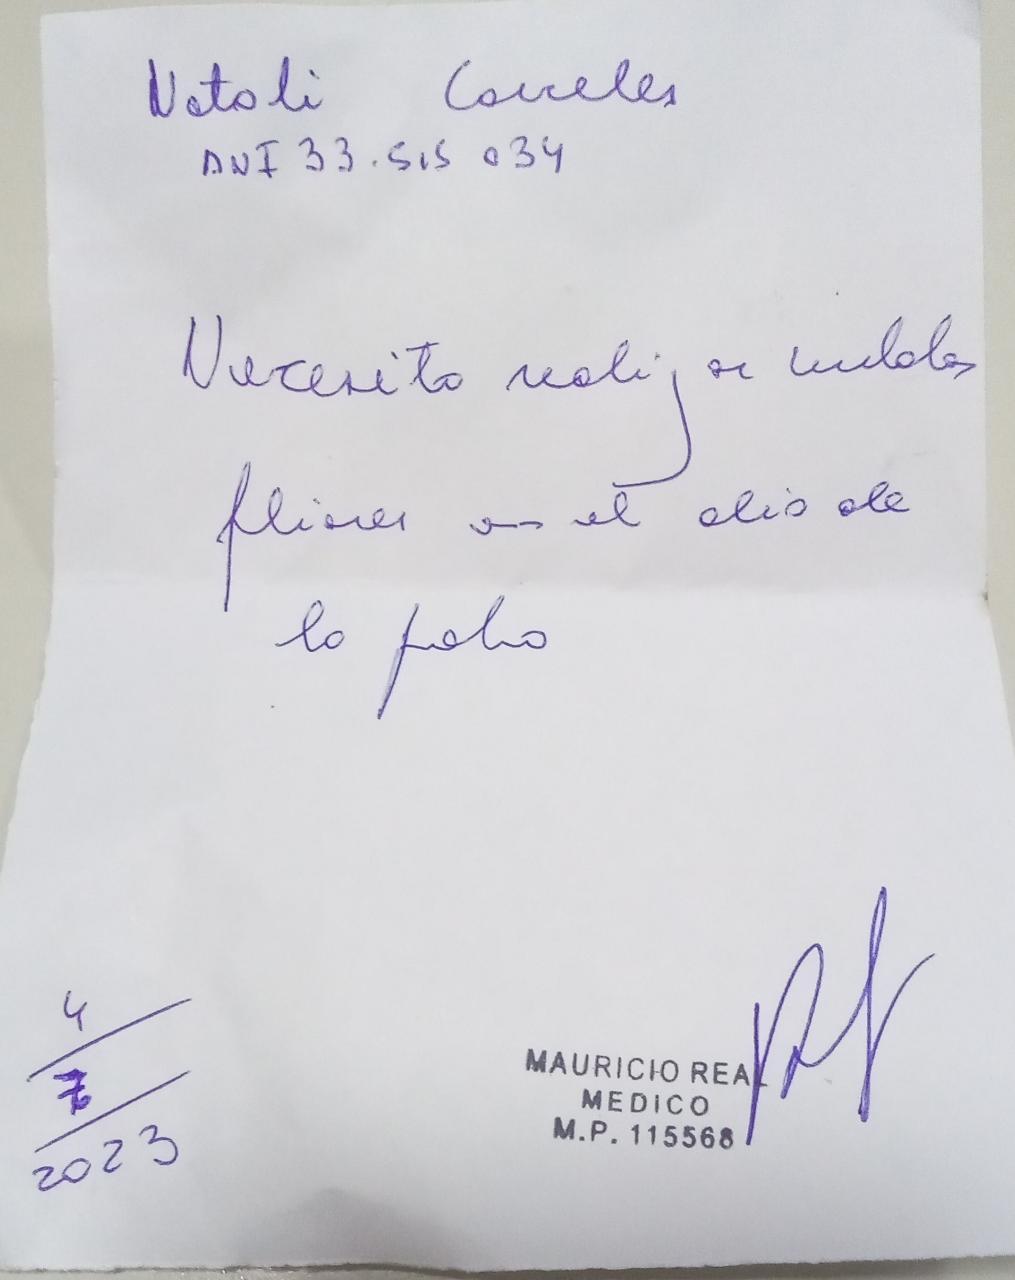 Natali Correles
DNI 33.515 034
Necesito realizar cuidados
fliares en el dia de
la fecha
4
7
2023
MAURICIO REAL
MEDICO
M.P. 115568